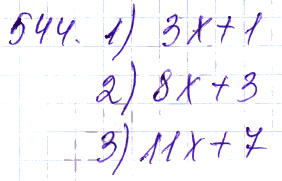 544. 1) 3x+1
2) 8x+3
3) 11x+7